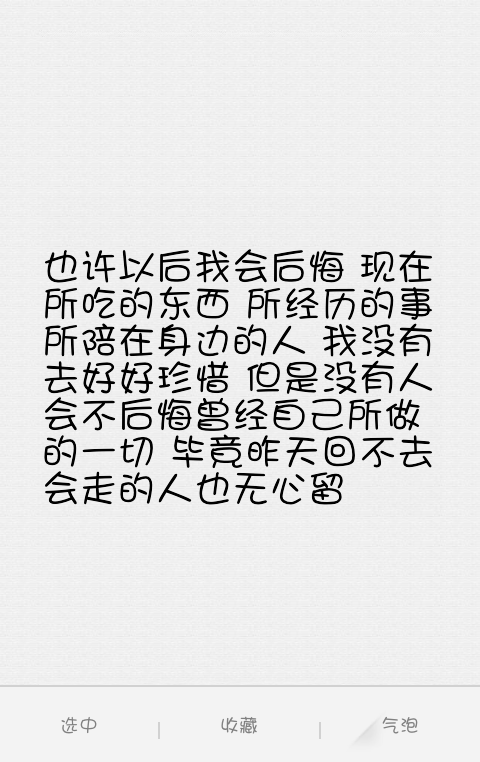 也许以后我会后悔 现在
所吃的东西 所经历的事
所陪在身边的人 我没有
去好好珍惜 但是没有人
会不后悔曾经自己所做
的一切 毕竟昨天回不去
会走的人也无心留
选中 收藏 气泡